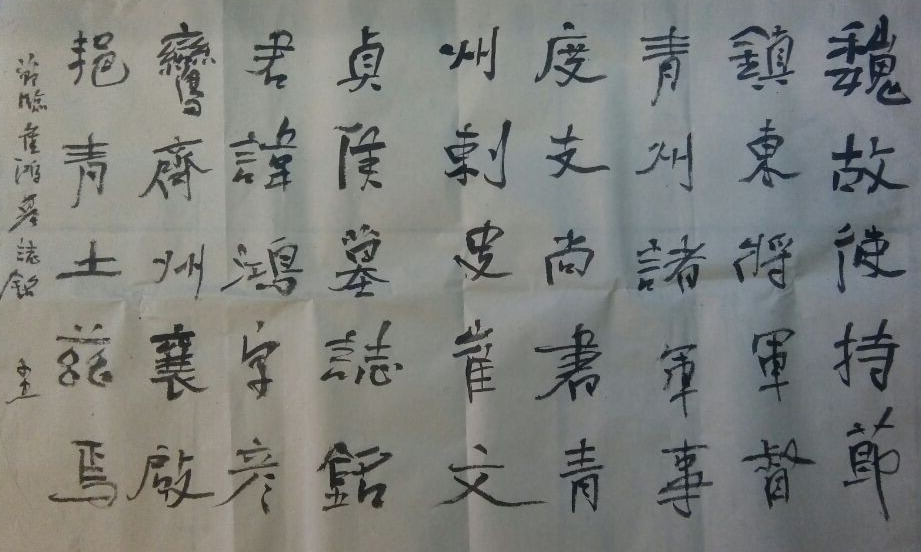 魏故使持節
鎮東將軍督
青州諸軍事
度支尚書青
州刺史崔文
貞侯墓誌銘
君諱鴻字彦
鸞齊州襄啟
挹青土茲焉
節臨崔鴻墓誌銘